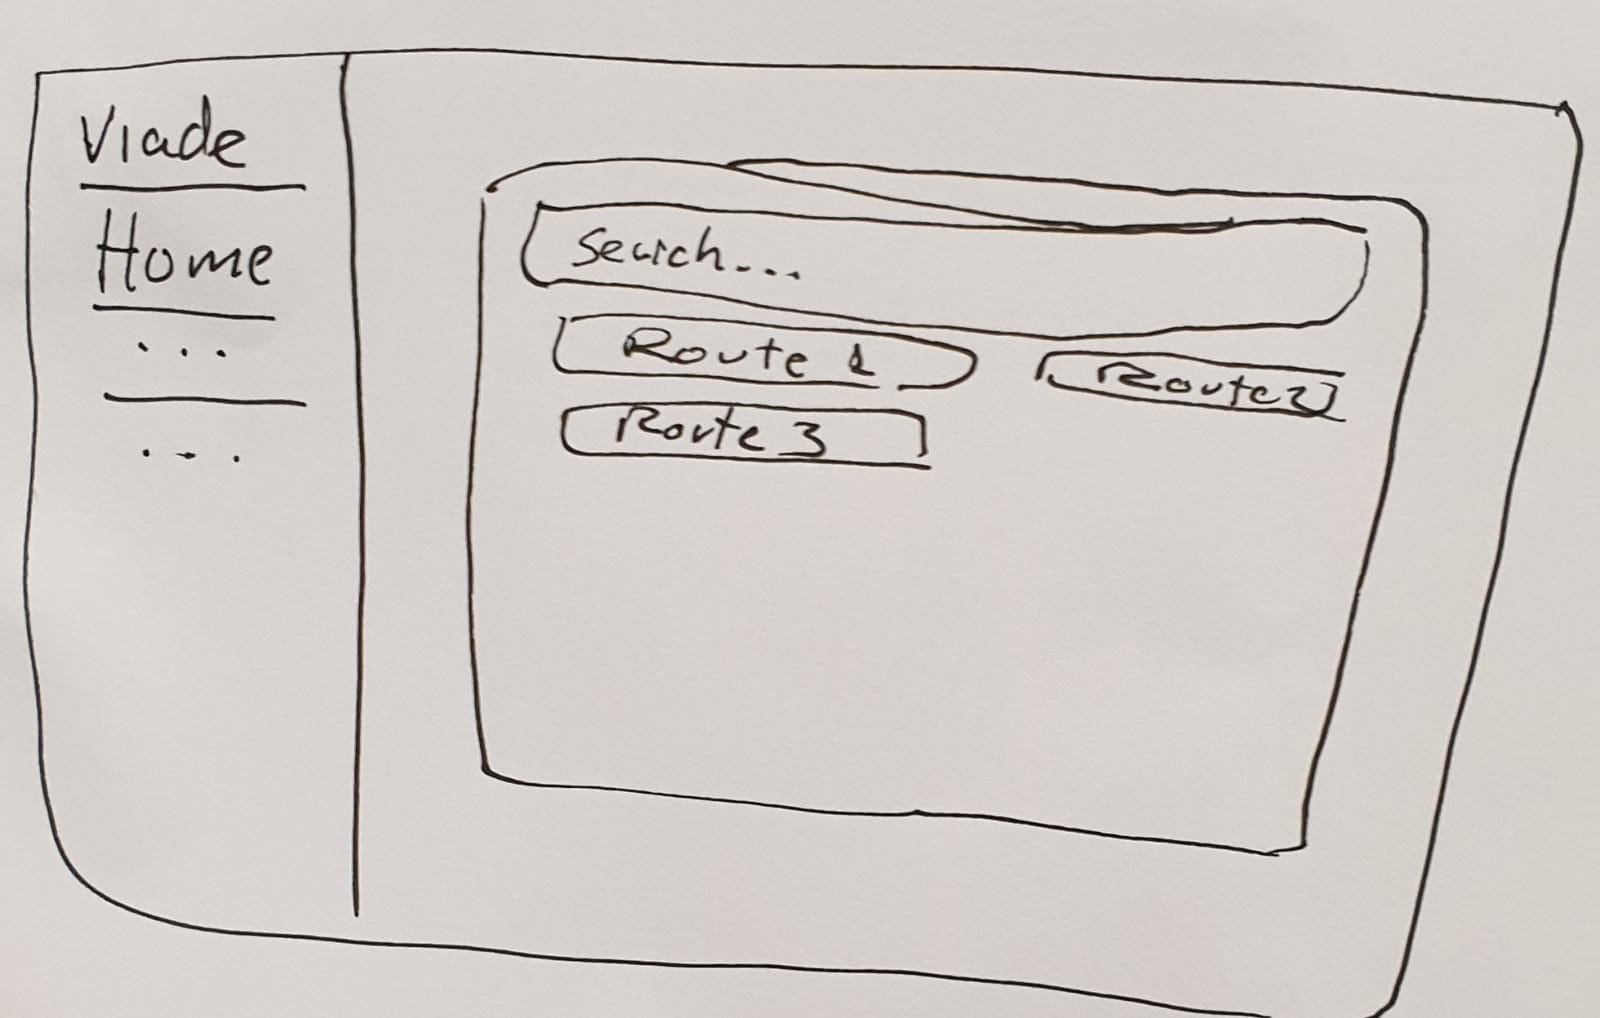 Viade
Home
...
...
Search...
Route 1
Route 2
Route 3